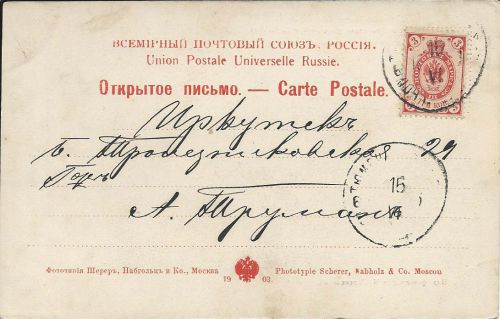 ВСЕМІРНЫЙ ПОЧТОВЫЙ СОЮЗЪ. РОССІЯ.
Union Postale Universelle Russie.
Открытое письмо. — Carte Postale.
Иркутскъ
29
А. Труманъ
15
Фототипія Шереръ, Набгольцъ и Ко., Москва
1903.
Phototypie Scherer, Nabholz & Co. Moscou